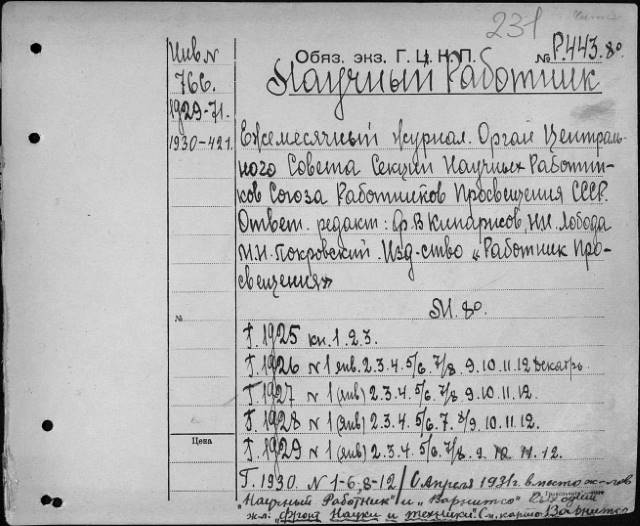 231
Инв N
766.
1929-71.
1930-421.
Обяз. экз. Г. Ц. К. П.
№ Р.443.80
Научный Работник
Ежемесячный журнал. Орган Централь-
ного Совета Секции Научных Работни-
ков Союза Работников Просвещения СССР.
Ответ. редакт: Ф.В Кипарисов, Н.И. Лобода
М.Н. Покровский. Изд-ство „Работник Про-
свещения»
М. 80.
№
Г. 1925 кн. 1. 2. 3.
Г. 1926 N 1 янв. 2. 3. 4. 5/6. 7/8. 9. 10. 11. 12 декабрь.
Г. 1927 N 1 (янв) 2. 3. 4. 5/6. 7/8. 9. 10. 11. 12.
Г. 1928 N 1 (янв) 2. 3. 4. 5/6. 7. 8/9. 10. 11. 12.
Цена
Г. 1929 N 1 (янв) 2. 3. 4. 5/6. 7/8. 9. 10. 11. 12.
Г. 1930. N 1-6, 8-12/ С Апреля 1931 г. вместо ж-лов
"Научный Работник" и „Варнитсо" выходит
ж.л. „Фронт Науки и техники". См. карт. Варнитсо